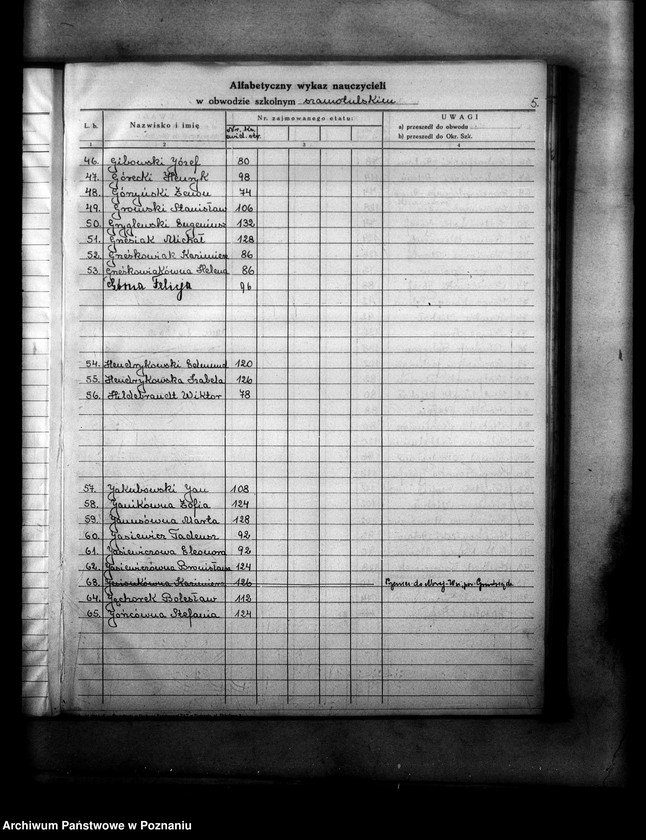 Alfabetyczny wykaz nauczycieli
w obwodzie szkolnym szamotulskim
5.
L. b. Nazwisko i imię Nr. zajmowanego etatu: UWAGI
a) przeszedł do obwodu
b) przeszedł do Okr. Szk.
1 2 3 4
46. Gibowski Józef 80
47. Górecki Henryk 98
48. Góryński Zenon 74
49. Growski Stanisław 106
50. Gryglewski Eugeniusz 132
51. Grześiak Michał 128
52. Grześkowiak Kazimierz 86
53. Grześkowiakówna Helena 86
96
54. Hendrykowski Edmund 120
55. Hendrykowska Izabela 126
56. Hildebrandt Wiktor 78
57. Jakubowski Jan 108
58. Janikówna Zofia 124
59. Janusówna Marta 128
60. Jasiewicz Tadeusz 92
61. Jasiewiczowa Eleonora 92
62. Jasiewiczówna Bronisława 124
63. Kazimiera 126
64. Jęchorek Bolesław 112
65. Jońcówna Stefania 124
Archiwum Państwowe w Poznaniu